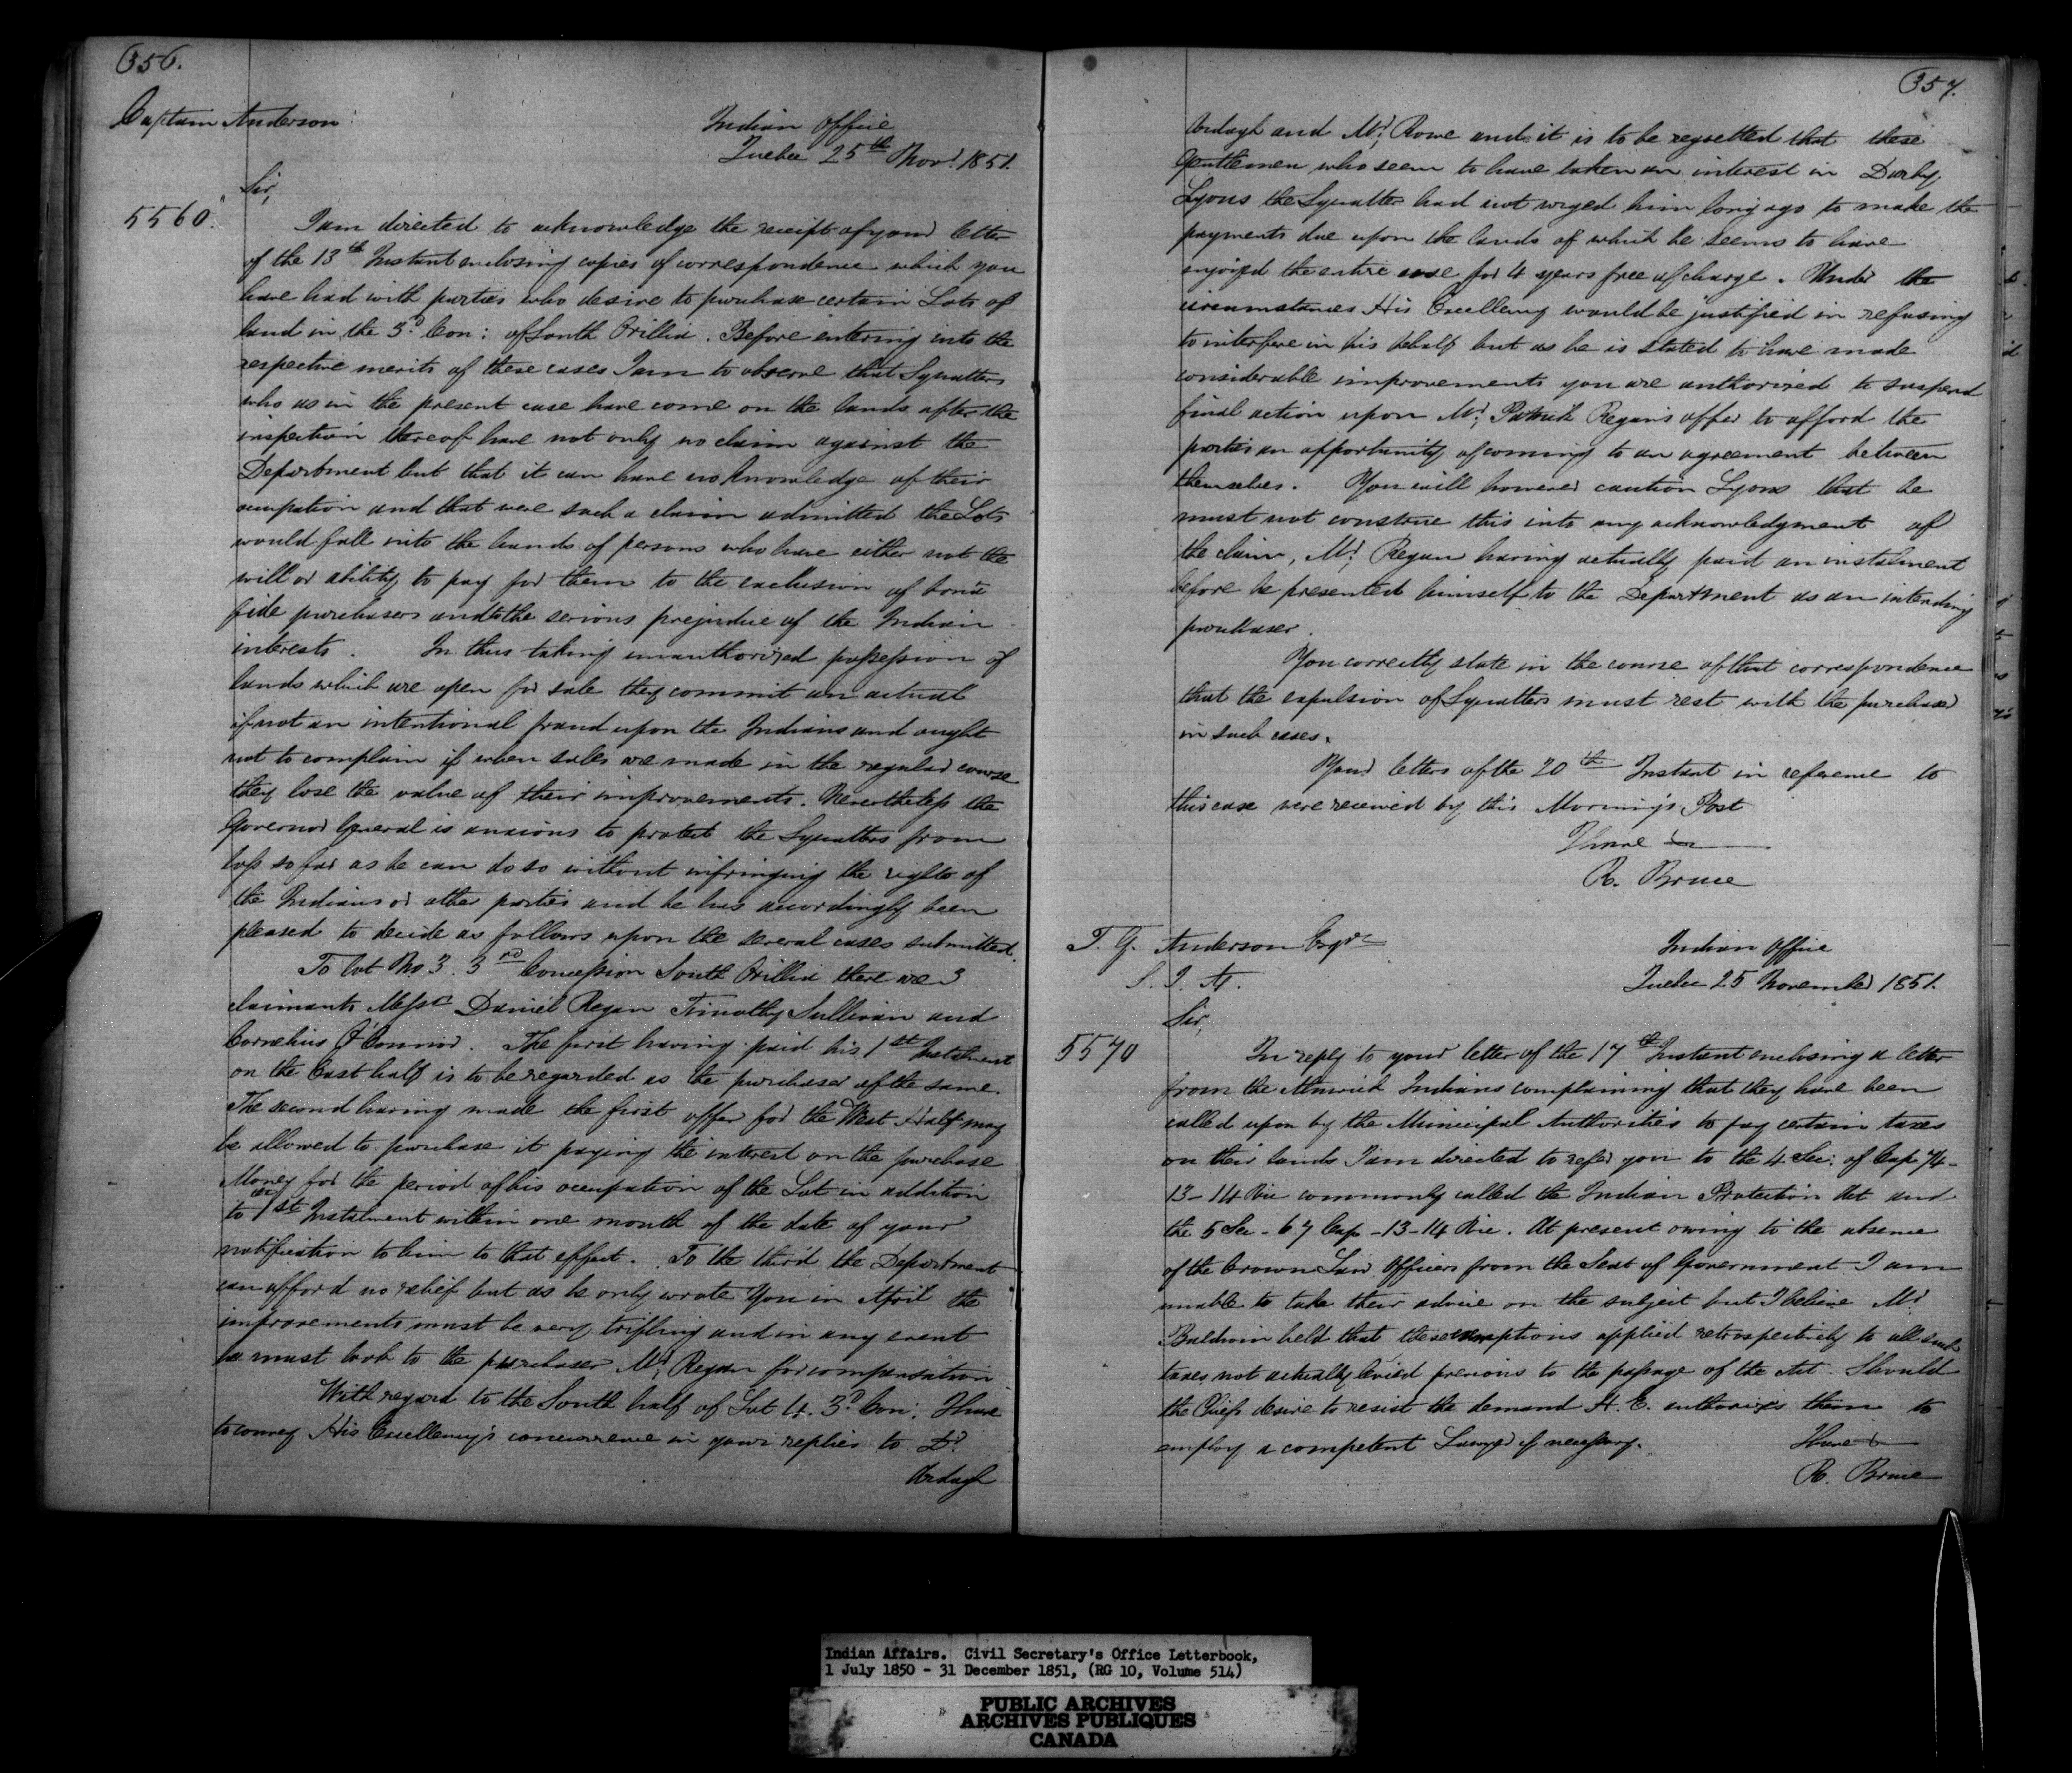 356.
Captain Anderson
Indian Office
Quebec 25th Novr. 1851.
Sir,
5560.
I am directed to acknowledge the receipt of your letter
of the 13th Instant enclosing copies of correspondence which you
have had with parties who desire to purchase certain Lots of
land in the 3d Con: of South Orillia. Before entering into the
respective merits of these cases I am to observe that Squatters
who as in the present case have come on the lands after the
inspection thereof have not only no claim against the
Department but that it can have no knowledge of their
occupation and that were such a claim admitted the Lots
would fall into the hands of persons who have either not the
will or ability to pay for them to the exclusion of bona
fide purchasers and to the serious prejudice of the Indian
interests. In thus taking unauthorized possession of
lands which are open for sale they commit an actual
if not an intentional fraud upon the Indians and ought
not to complain if when sales are made in the regular course
they lose the value of their improvements. Nevertheless the
Governor General is anxious to protect the Squatters from
loss so far as he can do so without infringing the rights of
the Indians or other parties and he has accordingly been
pleased to decide as follows upon the several cases submitted.
To Lot No 3. 3rd Concession South Orillia there are 3
claimants Messrs Daniel Regan Timothy Sullivan and
Cornelius O'Connor. The first having paid his 1st Instalment
on the East half is to be regarded as the purchaser of the same.
The second having made the first offer for the West Half may
be allowed to purchase it paying the interest on the purchase
Money for the period of his occupation of the Lot in addition
to the 1st Instalment within one month of the date of your
notification to him to that effect. To the third the Department
can afford no relief but as he only wrote You in April the
improvements must be very trifling and in any event
he must look to the purchaser Mr. Regan for compensation
With regard to the South half of Lot 4. 3d Con: I have
to convey His Excellency's concurrence in your replies to Dr.
Ardagh
357.
Ardagh and Mr. Rowe and it is to be regretted that these
Gentlemen who seem to have taken an interest in Darby
Lyons the Squatter had not urged him long ago to make the
payments due upon the lands of which he seems to have
enjoyed the entire use for 4 years free of charge. Under the
circumstances His Excellency would be justified in refusing
to interfere in his behalf but as he is stated to have made
considerable improvements you are authorized to suspend
final action upon Mr. Patrick Regan's offer to afford the
parties an opportunity of coming to an agreement between
themselves. You will however caution Lyons that he
must not construe this into any acknowledgment of
the claim, Mr. Regan having actually paid an instalment
before he presented himself to the Department as an intending
purchaser.
You correctly state in the course of that correspondence
that the expulsion of Squatters must rest with the purchaser
in such cases.
Your letters of the 20th Instant in reference to
this case were received by this Morning's Post
I have &c
R. Bruce
T. G. Anderson Esqre
S. I. A.
Indian Office
Quebec 25 November 1851.
Sir,
5570
In reply to your letter of the 17th Instant enclosing a letter
from the Alnwick Indians complaining that they have been
called upon by the Municipal Authorities to pay certain taxes
on their lands I am directed to refer you to the 4 Sec: of Cap 74-
13-14 Vic commonly called the Indian Protection Act and
the 5 Sec - 67 Cap - 13-14 Vic. At present owing to the absence
of the Crown Law Officers from the Seat of Government I am
unable to take their advice on the subject but I believe Mr.
Baldwin held that these exemptions applied retrospectively to all such
taxes not actually levied previous to the passage of the Act. Should
the Chiefs desire to resist the demand H. E. authorizes them to
employ a competent Lawyer if necessary.
I have &c
R. Bruce
Indian Affairs. Civil Secretary's Office Letterbook,
1 July 1850 - 31 December 1851, (RG 10, Volume 514)
PUBLIC ARCHIVES
ARCHIVES PUBLIQUES
CANADA